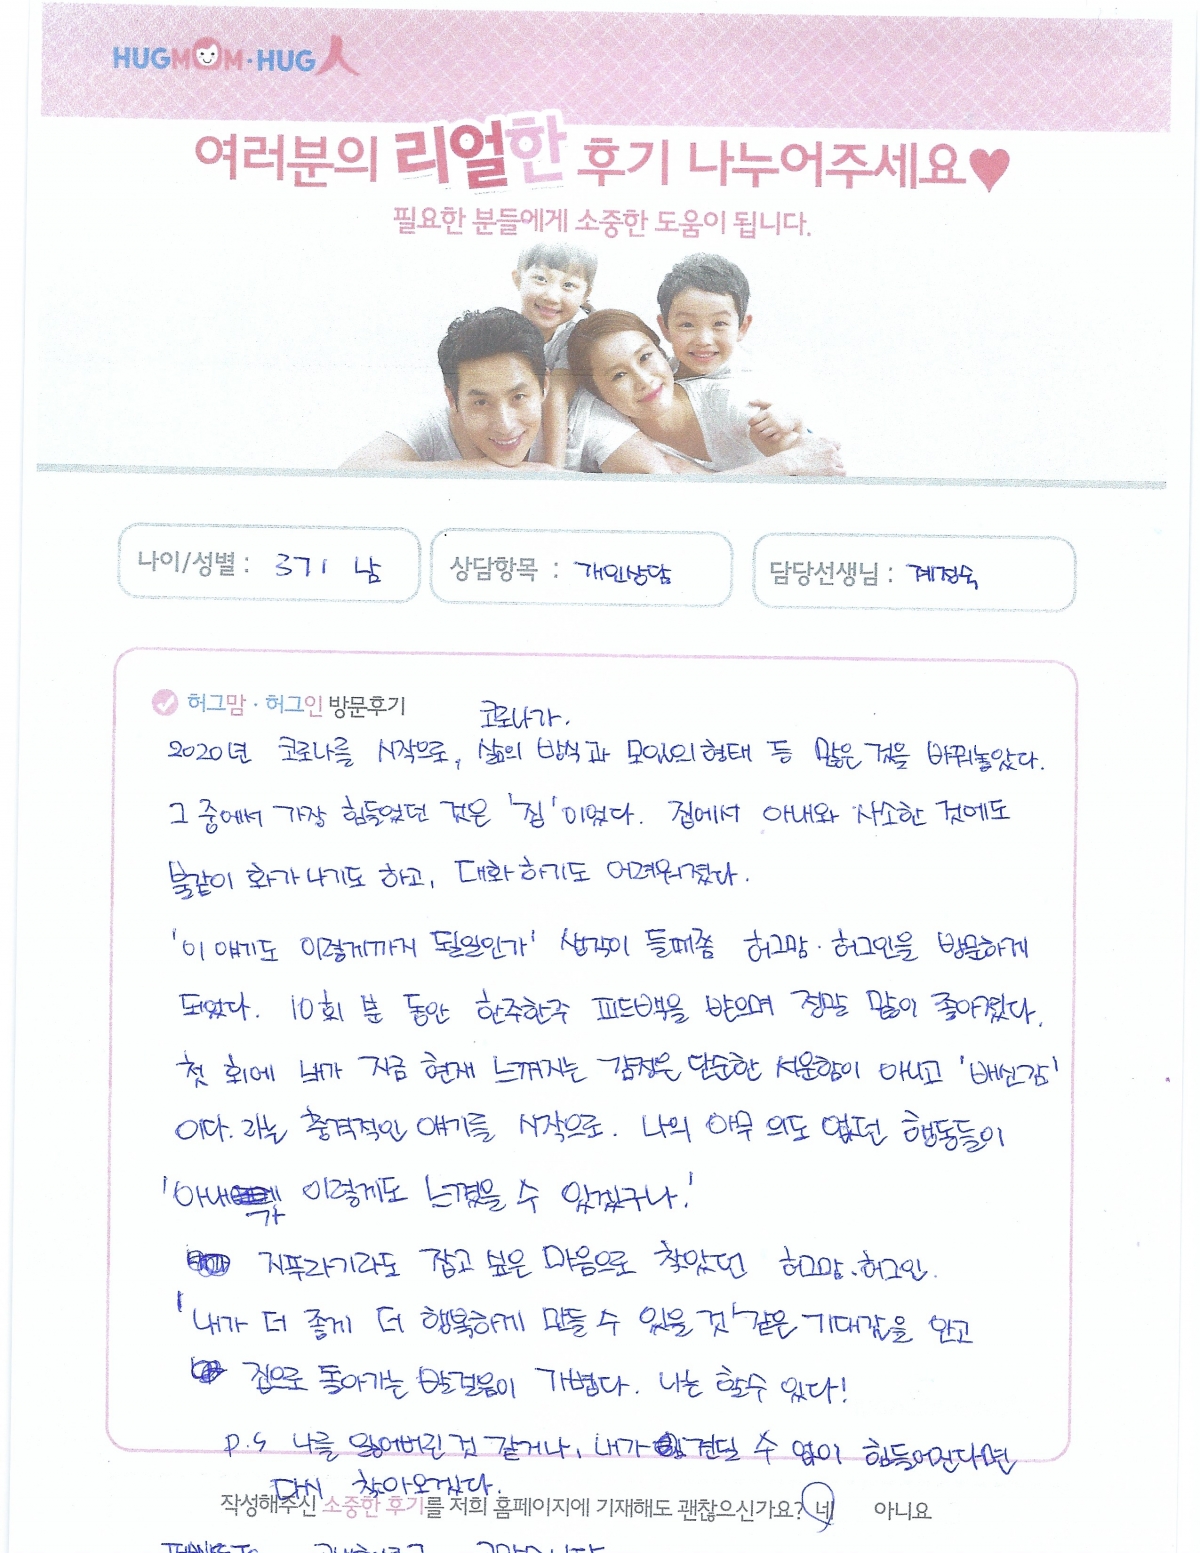 HUGMOM·HUG人
여러분의 리얼한 후기 나누어주세요♥
필요한 분들에게 소중한 도움이 됩니다.
나이/성별 : 37 / 남
상담항목 : 개인상담
담당선생님 : 계정숙
허그맘·허그인 방문후기
코로나가.
2020년 코로나를 시작으로, 삶의 방식과 모임의 형태 등 많은 것을 바꿔놓았다.
그 중에서 가장 힘들었던 것은 '집'이었다. 집에서 아내와 사소한 것에도
불같이 화가 나기도 하고, 대화하기도 어려워졌다.
'이 얘기도 이렇게까지 될일인가' 생각이 들때쯤 허그맘·허그인을 방문하게
되었다. 10회 분 동안 한주한주 피드백을 받으며 정말 많이 좋아졌다.
첫 회에 내가 지금 현재 느껴지는 감정은 단순한 서운함이 아니고 '배신감'
이다. 라는 충격적인 얘기를 시작으로. 나의 아무 의도 없던 행동들이
'아내가 이렇게도 느꼈을 수 있겠구나.'
지푸라기라도 잡고 싶은 마음으로 찾았던 허그맘.허그인.
'내가 더 좋게 더 행복하게 만들 수 있을 것' 같은 기대감을 안고
집으로 돌아가는 발걸음이 가볍다. 나는 할수 있다!
P.S 나를 잃어버린 것 같거나, 내가 견딜 수 없이 힘들어진다면
다시 찾아오겠다.
작성해주신 소중한 후기를 저희 홈페이지에 기재해도 괜찮으신가요? 네 아니요